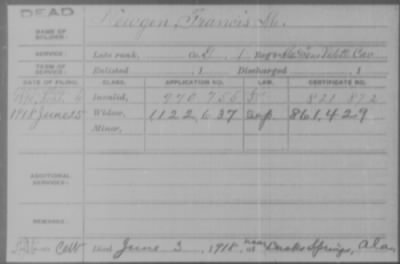 DEAD
NAME OF SOLDIER: Newgen, Francis M.
SERVICE: Late rank, Co. D, 1 Reg't Vidette Cav
TERM OF SERVICE: Enlisted 1 Discharged 1
DATE OF FILING. CLASS. APPLICATION NO. LAW. CERTIFICATE NO.
Invalid, 970.756 821.872
1918 June 25 Widow, 1122637 Amp. 861.429
Minor,
ADDITIONAL SERVICES:
REMARKS:
Died June 3, 1918, near Ducks Springs, Ala.